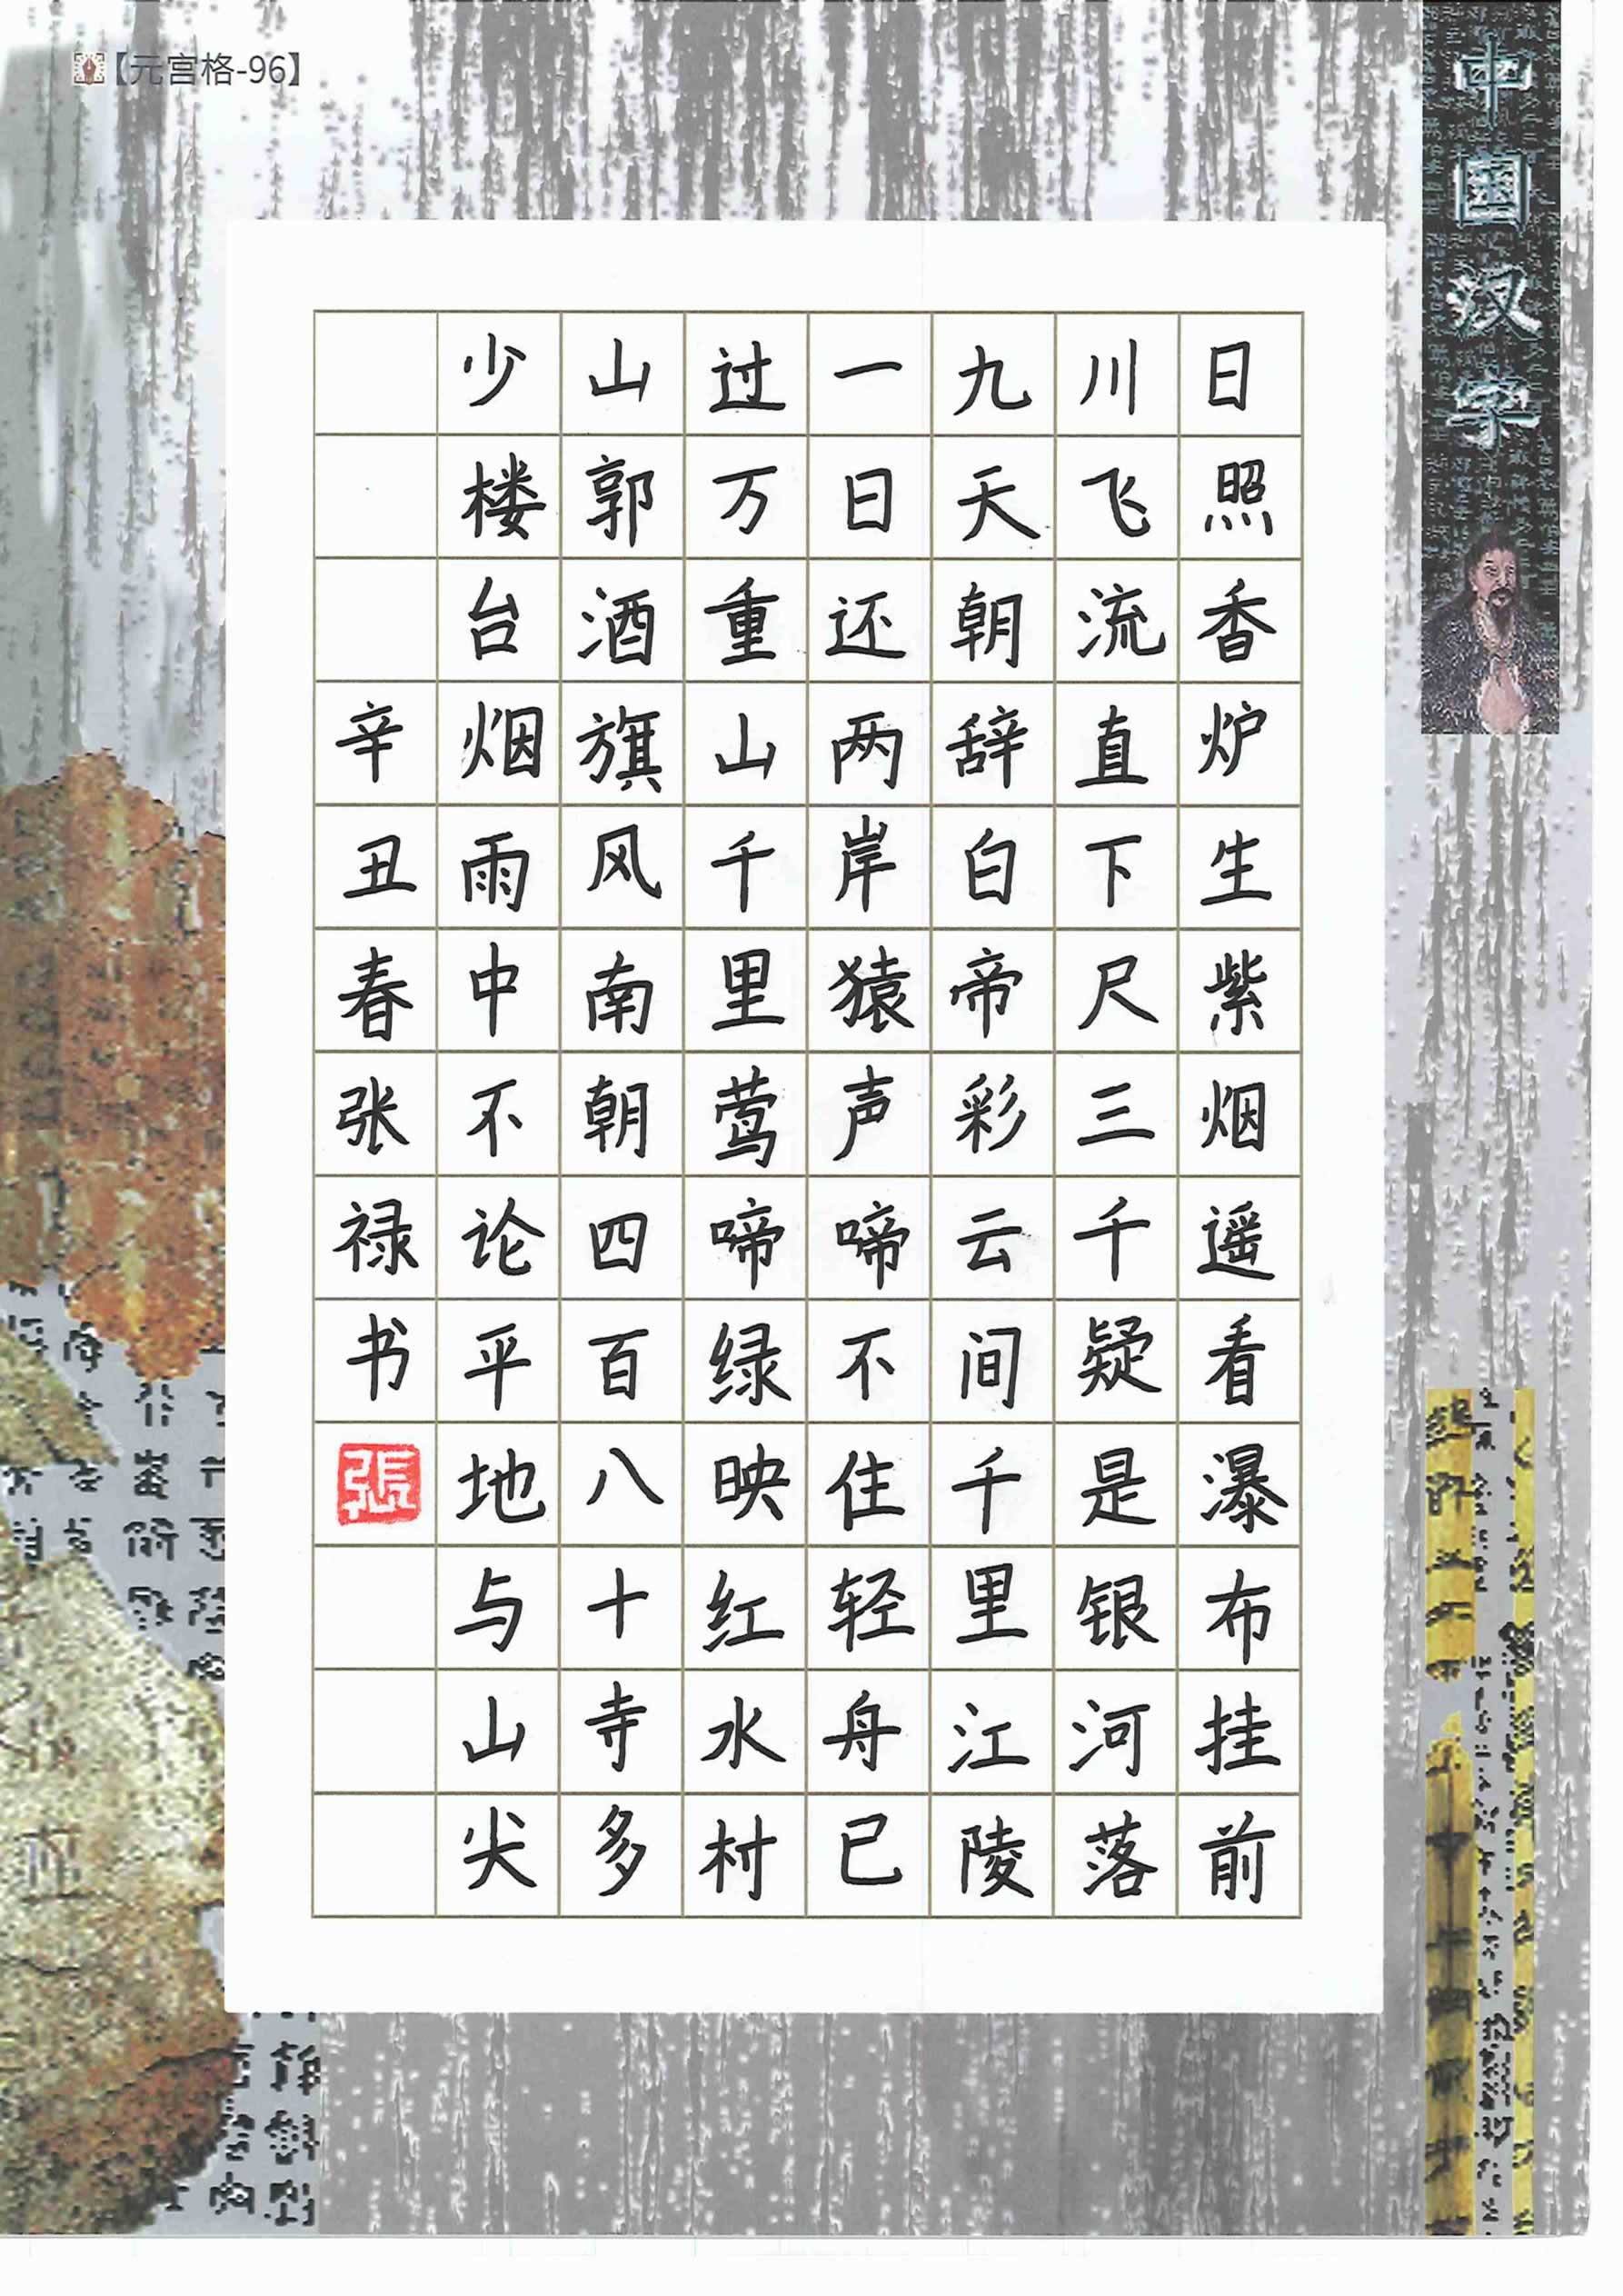 【元宫格-96】
中国汉字
日照香炉生紫烟遥看瀑布挂前
川飞流直下尺三千疑是银河落
九天朝辞白帝彩云间千里江陵
一日还两岸猿声啼不住轻舟已
过万重山千里莺啼绿映红水村
山郭酒旗风南朝四百八十寺多
少楼台烟雨中不论平地与山尖
辛丑春张禄书
張